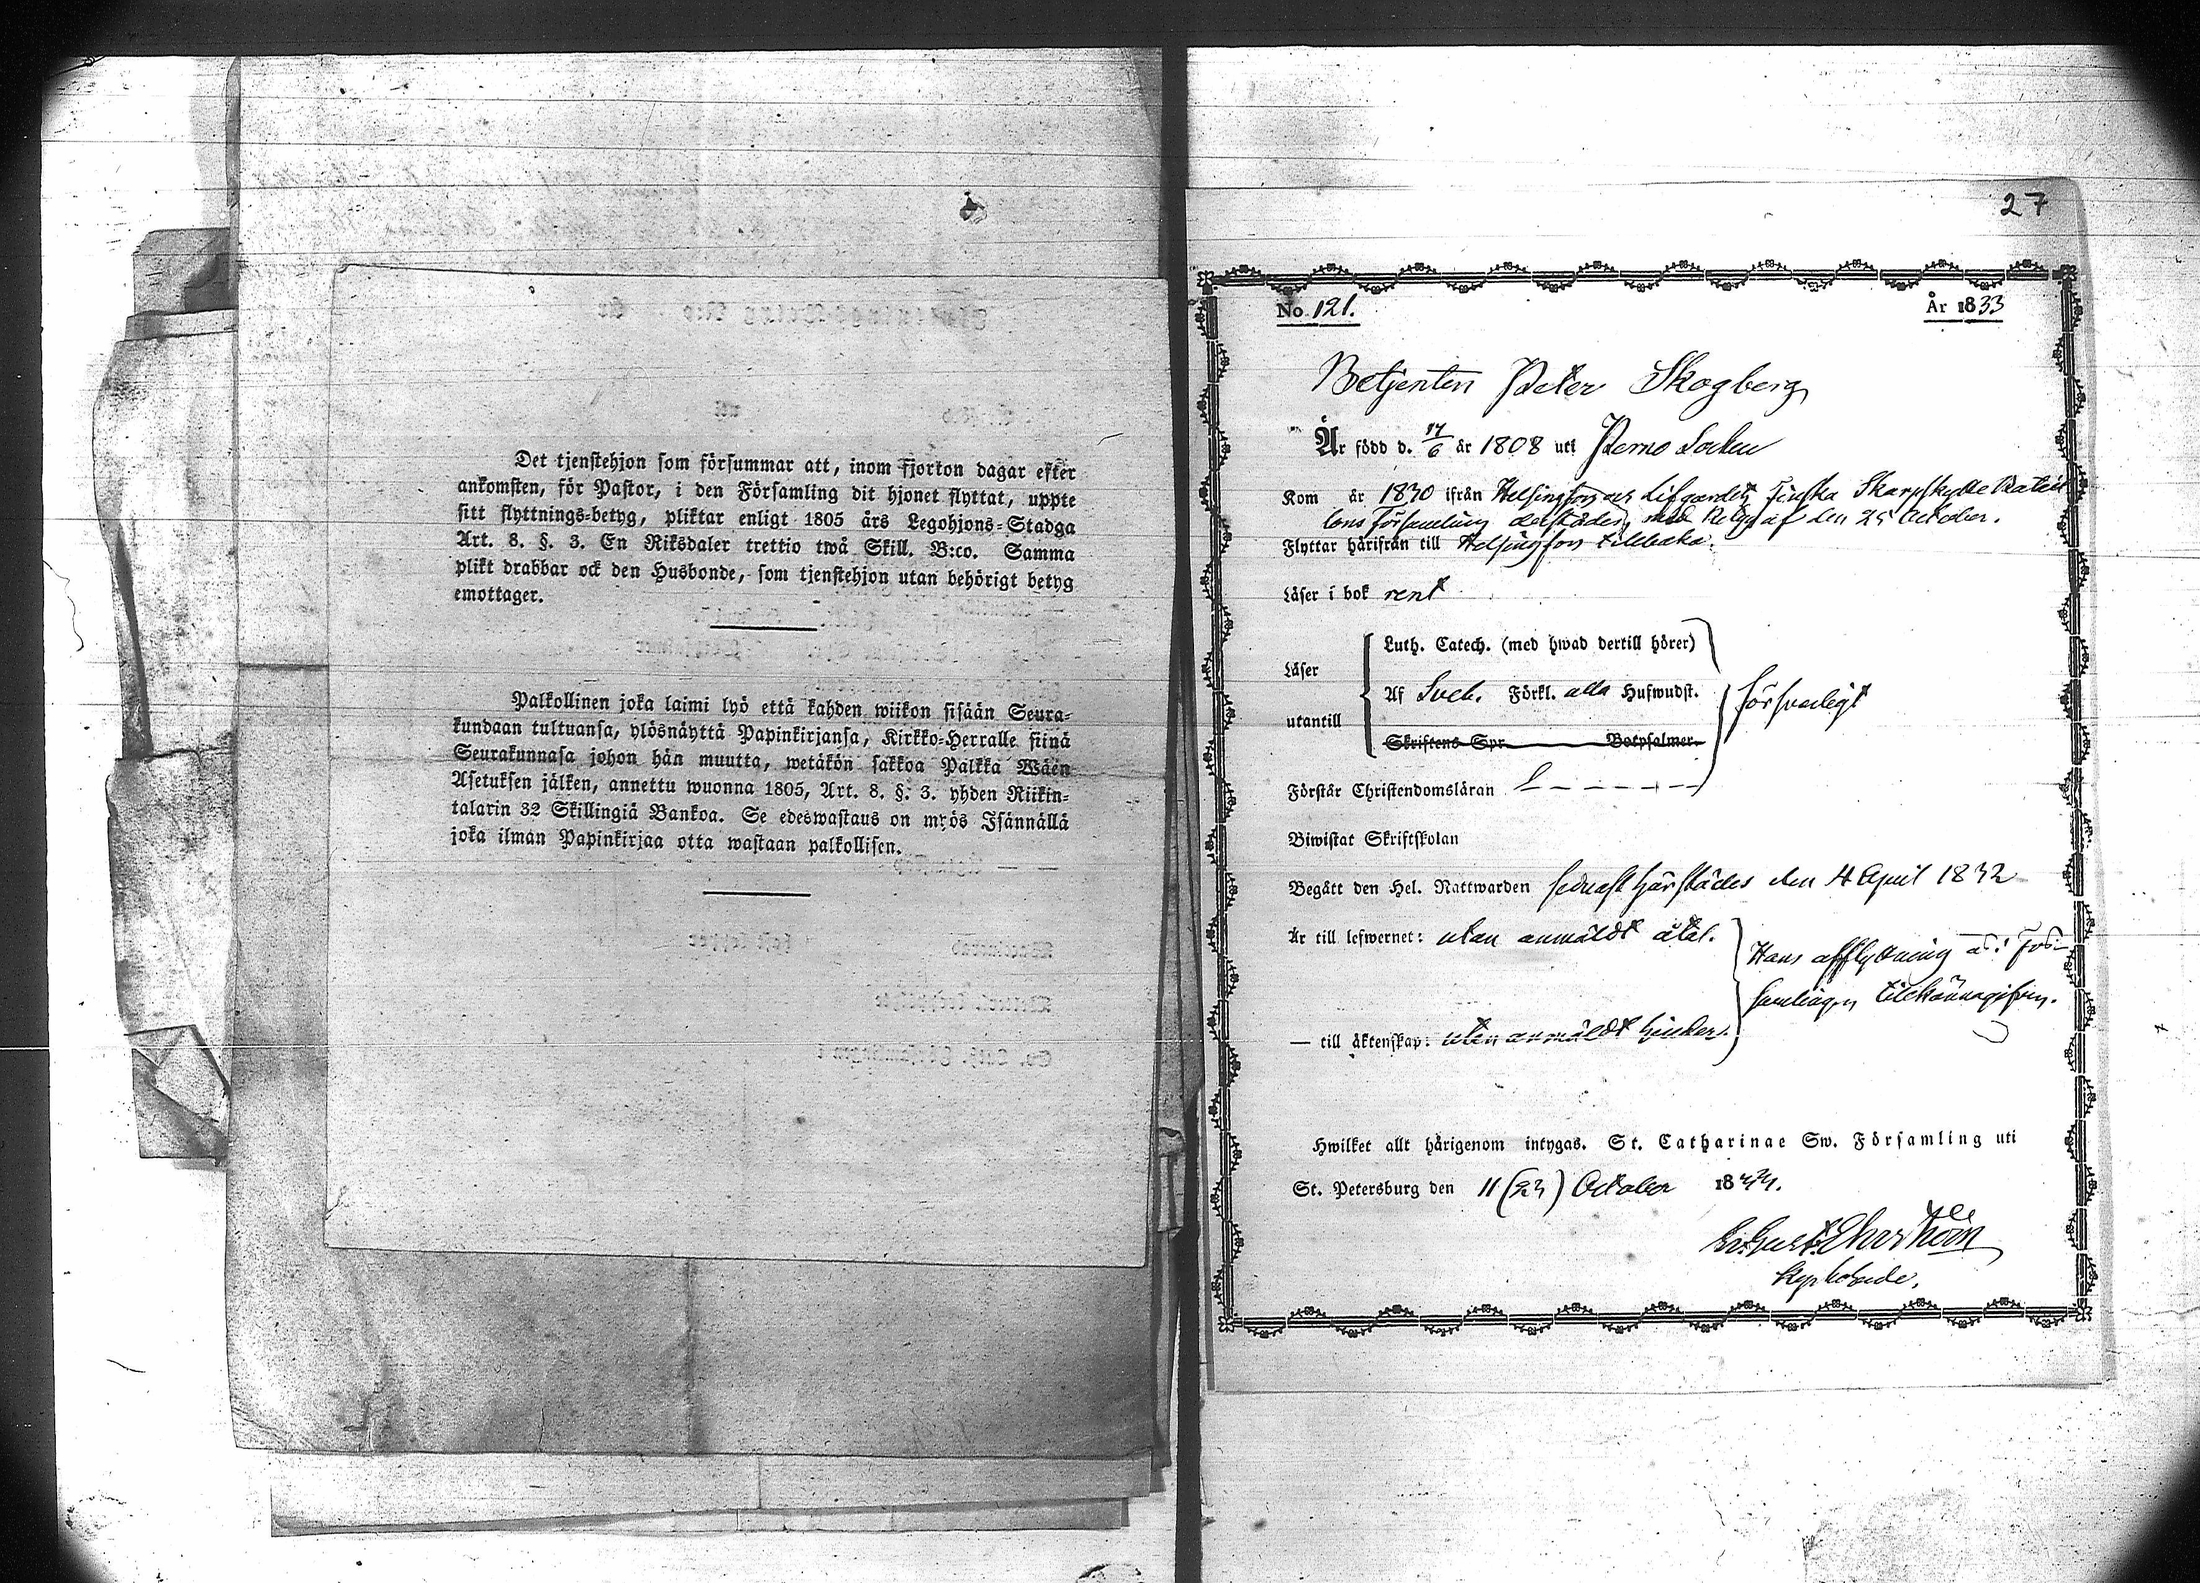 Det tjenstehjon som försummar att, inom fjorton dagar efter
ankomsten, för Pastor, i den Församling dit hjonet flyttat, uppte
sitt flyttnings-betyg, pliktar enligt 1805 års Legohjons-Stadga
Art. 8. §. 3. En Riksdaler trettio twå Skill. B:co. Samma
plikt drabbar ock den Husbonde, som tjenstehjon utan behörigt betyg
emottager.
Palkollinen joka laimi lyö että kahden wiikon sisään Seura-
kundaan tultuansa, ylösnäyttä Papinkirjansa, Kirkko-Herralle siinä
Seurakunnasa johon hän muutta, wetäkön sakkoa Palkka Wäen
Asetuksen jälken, annettu wuonna 1805, Art. 8. §. 3. yhden Riikin-
talarin 32 Skillingiä Bankoa. Se edeswastaus on myös Isännällä
joka ilman Papinkirjaa otta wastaan palkollisen.
27
No. 121.
År 1833
Betjenten Peter Skogberg
Är född d. 17/6 år 1808 uti Perno Socken
Kom år 1830 ifrån Helsingfors Lifgardets Finska Skarpskytte Batail
lons församling med betyg af den 25 October.
Flyttar härifrån till Helsingfors tillbaka.
Läser i bok rent
Läser
utantill
Luth. Catech. (med hwad dertill hörer)
Af Sveb. Förkl. alla Hufwudst.
Skriftens Spr. Botpsalmer.
försvarligt
Förstår Christendomsläran
Biwistat Skriftskolan
Begått den Hel. Nattwarden senast härstädes den 4 April 1832
Är till lefwernet: utan anmäldt åtal.
Hans afflyttning är i För-
samlingen tillkännagifven.
— till äktenskap: utan anmäldt hinder.
Hwilket allt härigenom intygas. St. Catharinae Sw. Församling uti
St. Petersburg den 11 (23) October 1833.
Ehrström
Kyrkoherde.